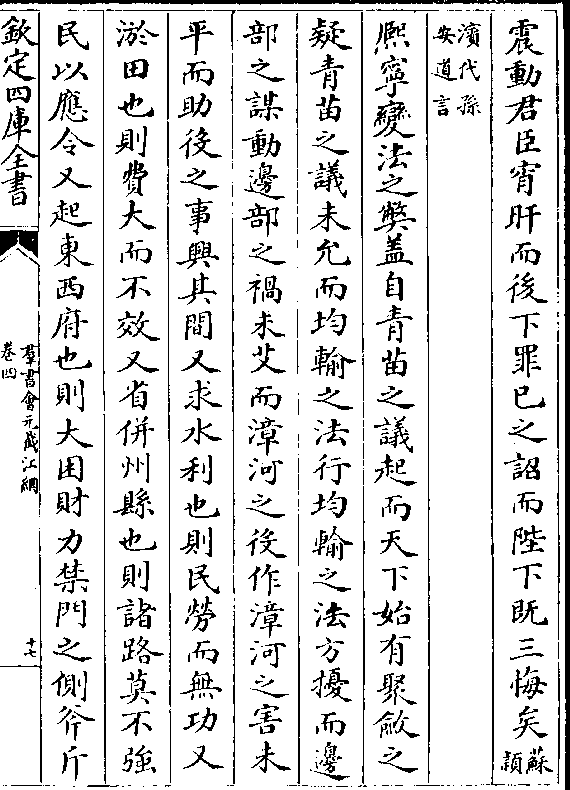 震動君臣宵旰而後下罪已之詔而陛下既三悔矣蘇頴
濱代孫
安道言
熙寧變法之獘盖自青苗之議起而天下始有聚斂之
疑青苗之議未允而均輸之法行均輸之法方擾而邊
部之謀動邊部之禍未艾而漳河之役作漳河之害未
平而助役之事興其間又求水利也則民勞而無功又
淤田也則費大而不效又省併州縣也則諸路莫不強
民以應令又起東西府也則大困財力禁門之側斧斤
欽定四庫全書
羣書會元截江網
卷四
十七